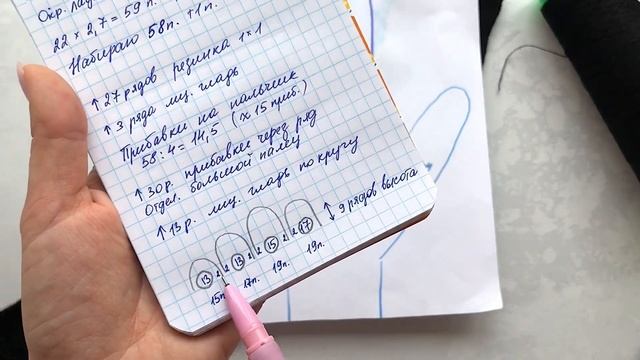 Окр. лад
22 x 2,7 = 59 п.
Набираю 58п. +1п.
↑ 27 рядов резинка 1×1
↑ 3 ряда лиц. гладь
Прибавки на пальчик
58:4=14,5 (x 15 приб.)
↑ 30р. прибавки через ряд
Отдел. большой палец
↑ 13р. лиц. гладь по кругу
13 2 2 13 2 2 15 2 2 17 ↕ 9 рядов высота
15п. 17п. 19п. 19п.